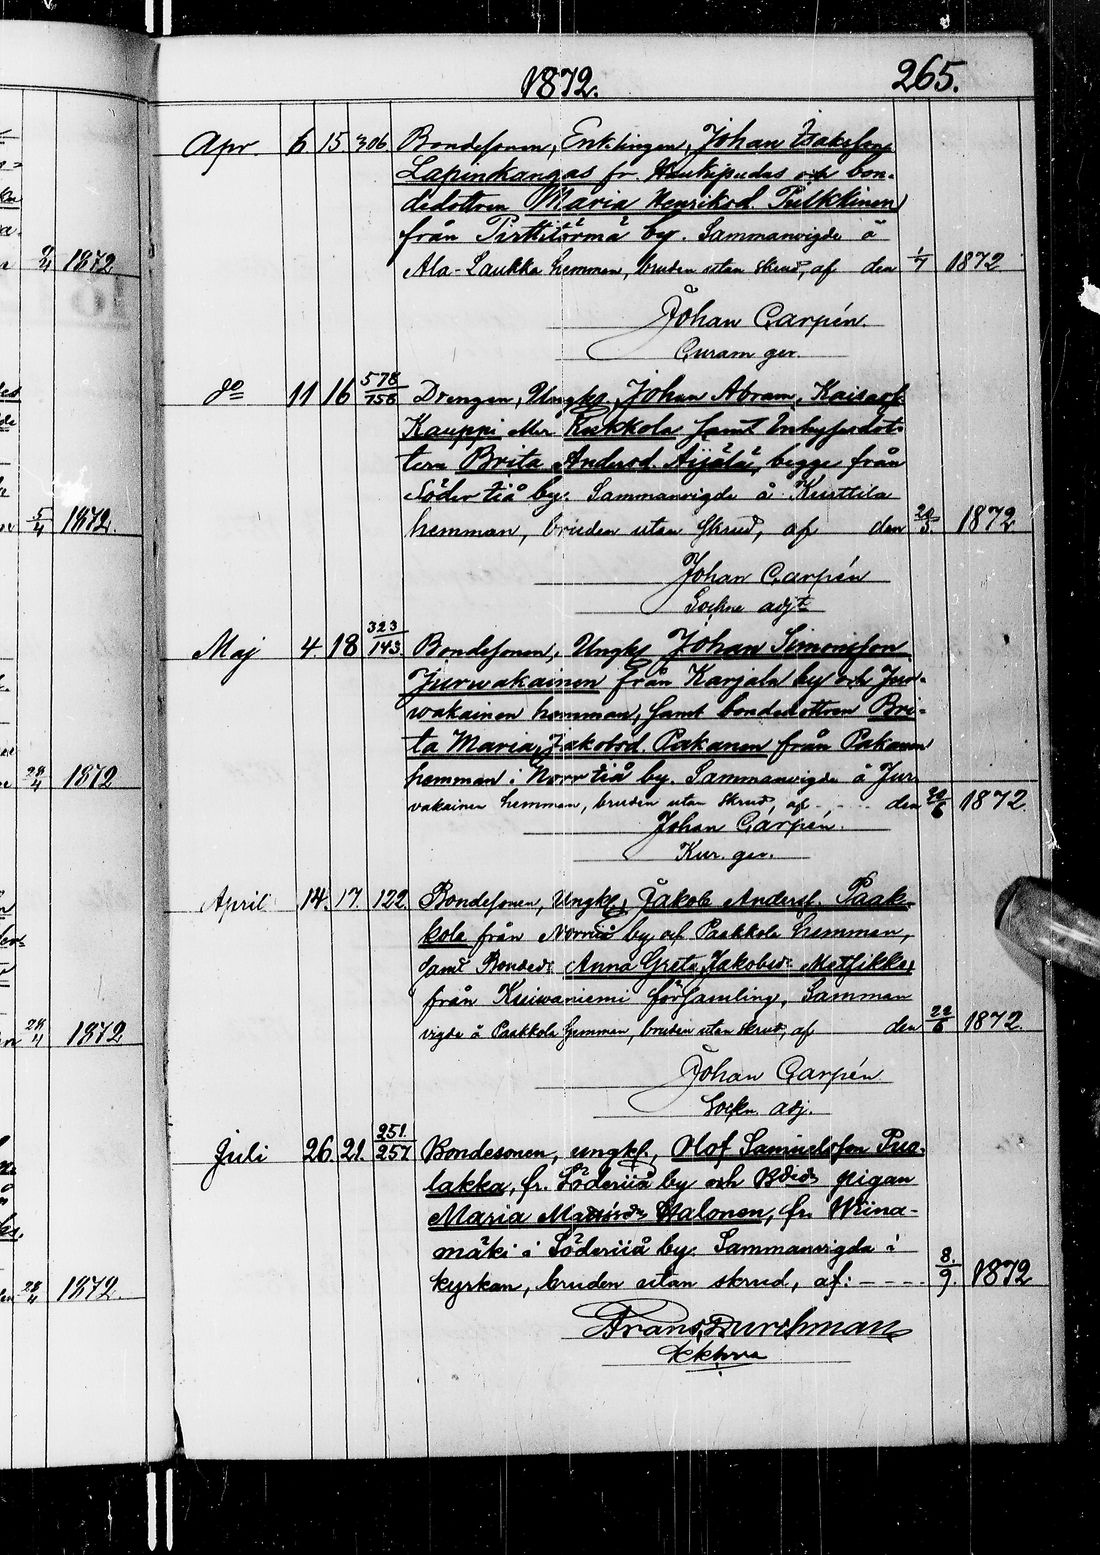 1872. 265.
Apr. 6 15 306. Bondesonen, Enklingen, Johan Isaksson
Lapinkangas fr. Haukipudas och bon-
dedottren Maria Henriksd. Pulkkinen
från Pirttitörmä by. Sammanvigde å
Ala-Laukka hemman, bruden utan skrud, af den 1/7 1872
Johan Carpén.
Curam ger.
do 11 16 578/158 Drengen, Ungk. Johan Abram Kaisasf.
Kauppi eller Kukkola samt Inhysesdot-
tern Brita Andersd. Äijälä, begge från
Söder Iiå by. Sammanvigde å Kurttila
hemman, bruden utan skrud, af den 20/5. 1872
Johan Carpén
Sockne adjt
Maj 4. 18 323/143. Bondesonen, Ungk. Johan Simonsson
Jurwakainen från Karjala by och Jur-
wakainen hemman, samt bondedottren Bri-
ta Maria Jakobsd. Pakanen från Pakanen
hemman i Norr Iiå by. Sammanvigde å Jur
vakainen hemman, bruden utan skrud, af den 22/6 1872
Johan Carpén.
Kur. ger.
April 14. 17. 122. Bondesonen, Ungk. Jakob Andersf. Paak-
kola från Norriiå by af Paakkola hemman,
samt Bonded. Anna Greta Jakobsd.
från Kuivaniemi församling, Samman
vigde å Paakkola hemman, bruden utan skrud, af den 22/6 1872.
Johan Carpén
Sockn. adj.
Juli 26. 21. 251/257 Bondesonen, ungk., Olof Samuelsson Puo-
lakka, fr. Söderiiå by och pigan
Maria Stalonen, fr. Wiina-
mäki i Söderiiå by. Sammanvigda i
kyrkan, bruden utan skrud, af: - - - - 8./9. 1872
Frans Durchman
1872
1872.
1872
1872
1872.